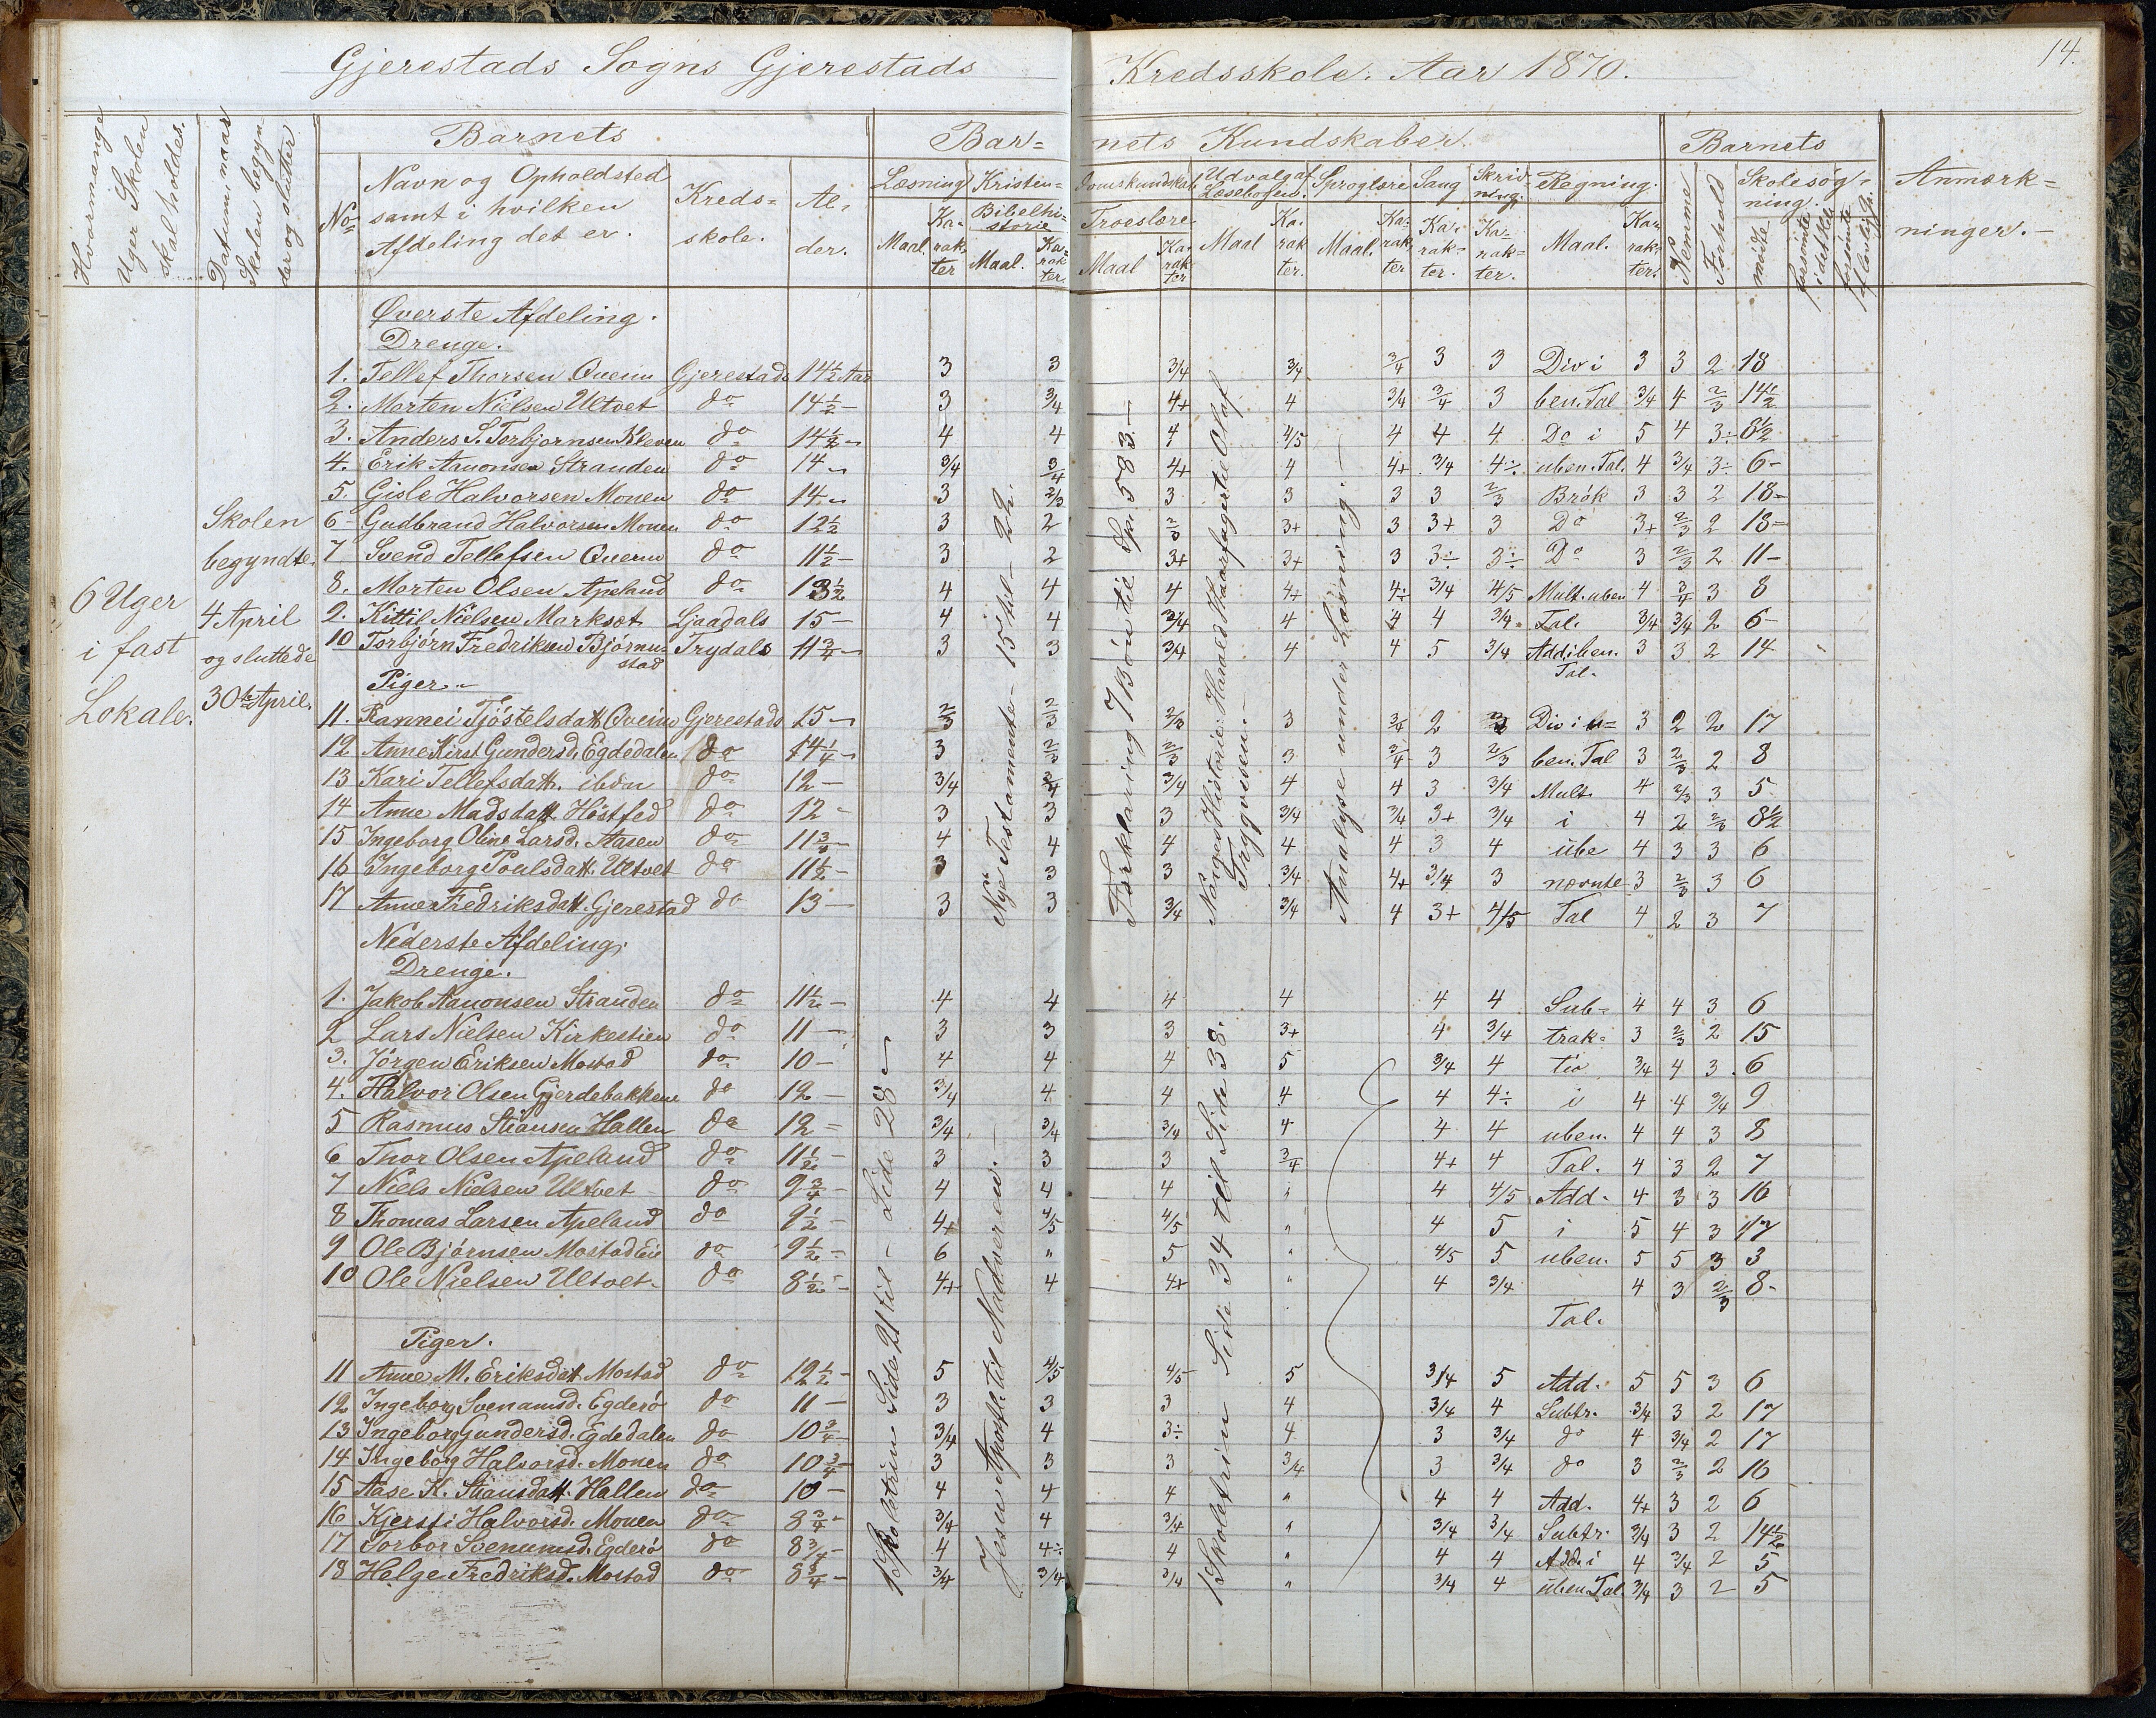 Gjerestads Sogns Gjerestads Kredsskole. Aar 1870.
14.
Hvormange Uger Skolen skal holdes.
Datum, naar Skolen begynder og slutter
Barnets
No
Navn og Opholdsted samt i hvilken Afdeling det er.
Kredsskole.
Alder.
Barnets Kundskaber.
Læsning
Maal.
Karakter
Kristendomskundskab
Bibelhistorie
Maal.
Karakter
Troeslære
Maal
Karakter
Udvalg af Læsebogen.
Maal
Karakter.
Sproglære
Maal.
Karakter
Sang
Karakter.
Skrivning.
Karakter.
Regning.
Maal.
Karakter.
Barnets
Nemme
Forhold
Skolesøgning.
møde
forsømte
forsømte
Anmærkninger.
6 Uger i fast Lokale.
Skolen begyndte 4 April og sluttede 30te April.
Øverste Afdeling.
Drenge.
1. Tellef Thorsen Qverne Gjerestads 14½ Aar 3 3 3/4 3/4 3/4 3 3 Div i 3 3 2 18
2. Morten Nielsen Ultvet do 14½ - 3 3/4 4+ 4 3/4 3/4 3 ben. Tal 3/4 4 2/3 14½
3. Anders S. Torbjørnsen Kleven do 14½ - 4 4 4 4/5 4 4 4 Do i 5 4 3÷ 8½
4. Erik Aanonsen Stranden do 14 - 3/4 3/4 4+ 4 4+ 3/4 4÷ uben. Tal. 4 3/4 3÷ 6-
5. Gisle Halvorsen Monen do 14 - 3 2/3 3 3 3 3 2/3 Brök 3 3 2 18-
6- Gudbrand Halvorsen Monen do 12½ 3 2 2/3 3+ 3 3+ 3 Do 3+ 2/3 2 18-
7 Svend Tellefsen Qverne do 11½ - 3 2 3+ 3+ 3 3÷ 3÷ Do 3 2/3 2 11-
8. Morten Olsen Apeland do 13½ 4 4 4 4+ 4÷ 3/4 4/5 Mult. uben 4 3/4 3 8
9. Kittil Nielsen Marksæt Ljaadals 15 - 4 4 3/4 4 4 4 3/4 Tal. 3/4 3/4 2 6-
10 Torbjørn Fredriksen Bjørnstad Trydals 11¾ - 3 3 3/4 4 4 5 3/4 Add i ben. Tal. 3 3 2 14
Piger.-
11. Rannei Tjöstelsdatt. Qverne Gjerestads 15 - 2/3 2/3 2/3 3 3/4 2 3 Div i u= 3 2 2 17
12 Anne Kirst. Gundersd. Egdedalen do 14¼ - 3 2/3 2/3 3 3/4 3 2/3 ben. Tal 3 2/3 2 8
13 Kari Tellefsdatt. ibdm do 12 - 3/4 3/4 3/4 4 4 3 3/4 Mult. 4 2/3 3 5
14 Anne Madsdatt. Höstfad do 12 - 3 3 3 3/4 3/4 3+ 3/4 i 4 2 2/3 8½
15 Ingeborg Oline Larsd. Aasen do 11¾ - 4 4 4 4 4 3 4 ube 4 3 3 6
16 Ingeborg Poulsdatt. Ultvet do 11½ - 3 3 3 3/4 4+ 3/4 3 nævnte 3 2/3 3 6
17 Anne Fredriksdatt. Gjerestad do 13 - 3 3 3/4 3/4 4 3+ 4/5 Tal 4 2 3 7
Nye Testamente - 15 til - 22.
Forklaring 7 Bøn til Spr. 583.-
Norges Historie: Harald Haarfager til Olaf Trygvesen.-
Analyse under Læsning.-
Nederste Afdeling.
Drenge.
1. Jakob Aanonsen Stranden do 11½ - 4 4 4 4 4 4 Sub- 4 4 3 6
2 Lars Nielsen Kirkestien do 11 - 3 3 3 3+ 4 3/4 trak- 3 2/3 2 15
3. Jörgen Eriksen Mostad do 10 - 4 4 4 5 3/4 4 tio 3/4 4 3 6
4. Halvor Olsen Gjerdebakken do 12 - 3/4 4 4 4 4 4÷ i 4 4 3/4 9
5 Rasmus Stiansen Hallen do 12 = 3/4 3/4 3/4 4 4 4 uben. 4 4 3 8
6 Thor Olsen Apeland do 11½ - 3 3 3 3/4 4+ 4 Tal. 4 3 2 7
7 Niels Nielsen Ultvet do 9¾ - 4 4 4 " 4 4/5 Add. 4 3 3 16
8 Thomas Larsen Apeland do 9½ - 4+ 4/5 4/5 " 4 5 i 5 4 3 17
9 Ole Björnsen Mostad Eie do 9½ - 6 " 5 " 4/5 5 uben. 5 5 3 3
10 Ole Nielsen Ultvet. do 8½ - 4+ 4 4+ " 4 3/4 Tal. 4 3 2/3 8-
Piger.
11 Anne M. Eriksdatt. Mostad do 12½ - 5 4/5 4/5 5 3/4 5 Add. 5 5 3 6
12 Ingeborg Svenumsd. Egderö do 11 - 3 3 3 4 3/4 4 Subtr. 3/4 3 2 17
13 Ingeborg Gundersd. Egdedalen do 10¾ - 3/4 4 3÷ 4 3 3/4 do 4 3/4 2 17
14 Ingeborg Halvorsd. Monen do 10¾ - 3 3 3 3/4 3 3/4 do 3 2/3 2 16
15 Aase K. Stiansdatt. Hallen do 10 - 4 4 4 " 4 4 Add. 4+ 3 2 6
16 Kjersti Halvorsd. Monen do 8¾ - 3/4 4 3/4 " 3/4 3/4 Subtr. 3/4 3 2 14½
17 Torbor Svenumsd. Egderö do 8¾ - 4 4÷ 4 " 4 4 Add. i 4 3/4 2 5
18 Helge Fredriksd. Mostad do 8¾ - 3/4 3/4 3/4 " 3/4 4 uben Tal. 3/4 3 2 5
1 Skoletrin Side 21 til - Side 28 -
Jesu Apostle til Nadveren.-
1 Skoletrin Side 34 til Side 38.